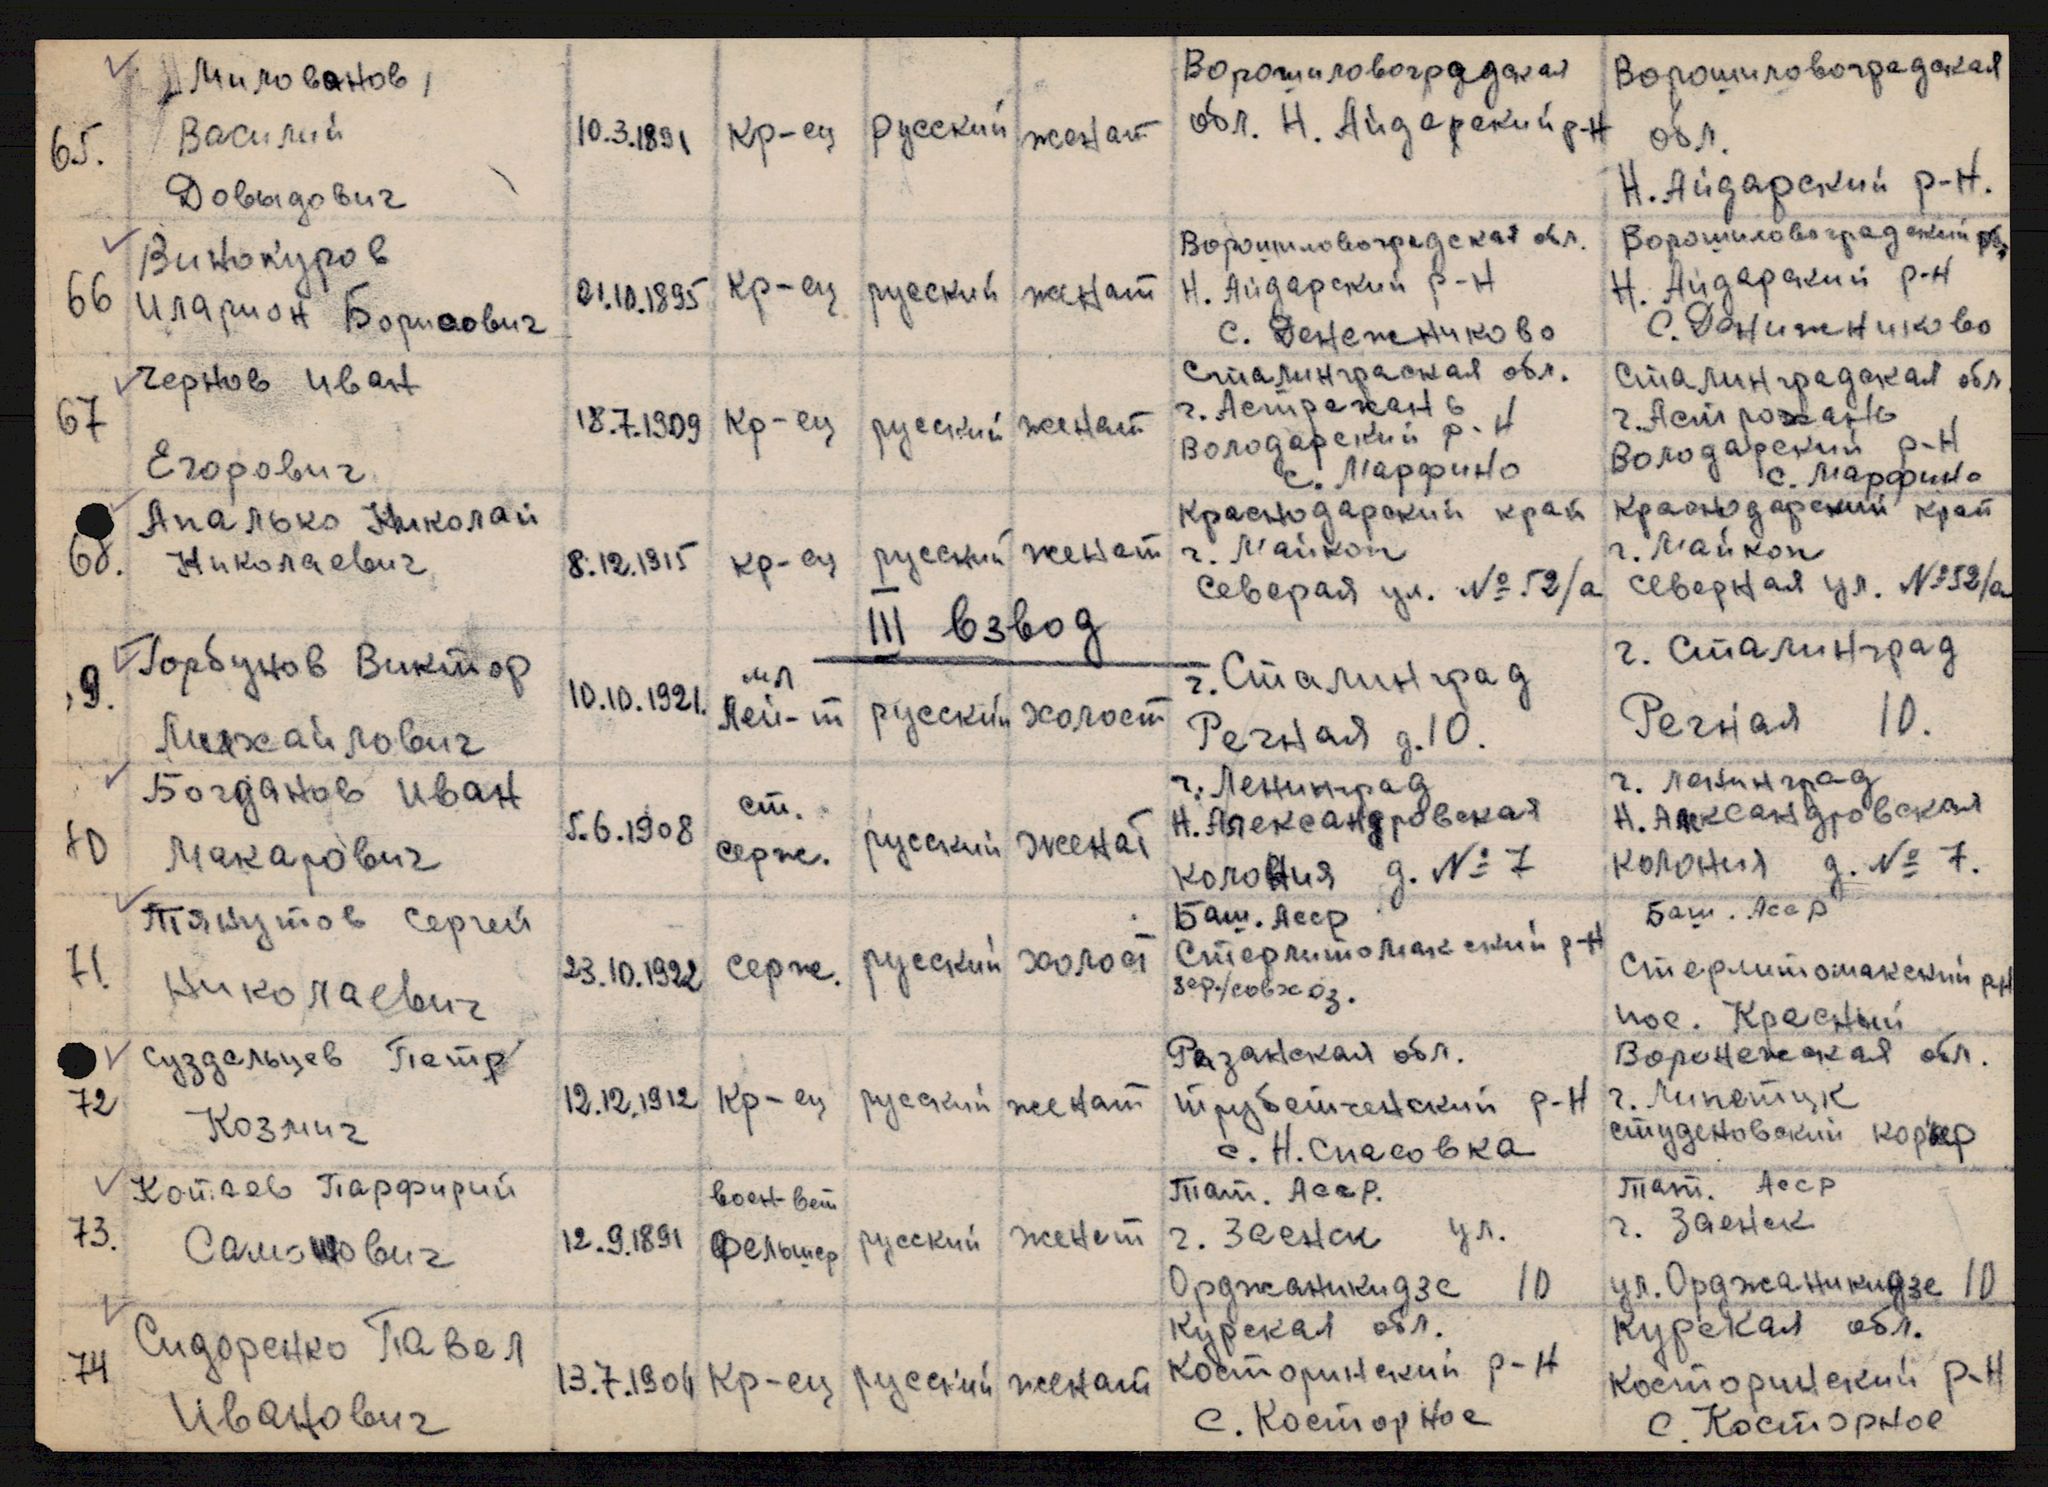 65.
Милованов
Василий
Довыдович
10.3.1891
Кр-ец
русский
женат
Ворошиловоградская
обл. Н. Айдарский р-н
Ворошиловоградская
обл.
Н. Айдарский р-н.
66
Винокуров
Иларион Борисович
21.10.1895
Кр-ец
русский
женат
Ворошиловоградская обл.
Н. Айдарский р-н
с. Денежниково
Ворошиловоградский обл.
Н. Айдарский р-н
с. Денижниково
67
Чернов Иван
Егорович
18.7.1909
Кр-ец
русский
женат
Сталинграская обл.
г. Астрахань
Володарский р-н
с. Марфино
Сталинградская обл.
г. Астрохань
Володарский р-н
с. Марфино
68.
Апалько Николай
Николаевич
8.12.1915
кр-ец
русский
женат
Краснодарский край
г. Майкоп
Северая ул. № 52/а
Краснодарский край
г. Майкоп
северная ул. № 52/а
III взвод
9.
Горбунов Виктор
Михайлович
10.10.1921.
мл
Лей-т
русский
холост
г. Сталинград
Речная д. 10.
г. Сталинград
Речная 10.
70
Богданов Иван
Макарович
5.6.1908
ст.
серж.
русский
женат
г. Ленинград
Н. Александровская
колония д. № 7
г. Ленинград
Н. Александровская
колония д. № 7.
71.
Тякутов Сергей
Николаевич
23.10.1922
серж.
русский
холост
Баш. Асср
Стерлитомакский р-н
зер./совхоз.
Баш. Асср
Стерлитомакский р-н
пос. Красный
72
Суздальцев Петр
Козмич
12.12.1912
Кр-ец
русский
женат
Рязанская обл.
трубетченский р-н
с. Н. Спасовка
Воронежская обл.
г. Липетцк
студеновский корьер
73.
Котаев Парфирий
Самонович
12.9.1891
воен-вет
фельшер
русский
женат
Тат. Асср.
г. Заенск ул.
Орджаникидзе 10
Тат. Асср
г. Заенск
ул. Орджаникидзе 10
74
Сидоренко Павел
Иванович
13.7.1904
Кр-ец
русский
женат
Курская обл.
Косторинский р-н
с. Косторное
Курская обл.
Косторинский р-н
с. Косторное